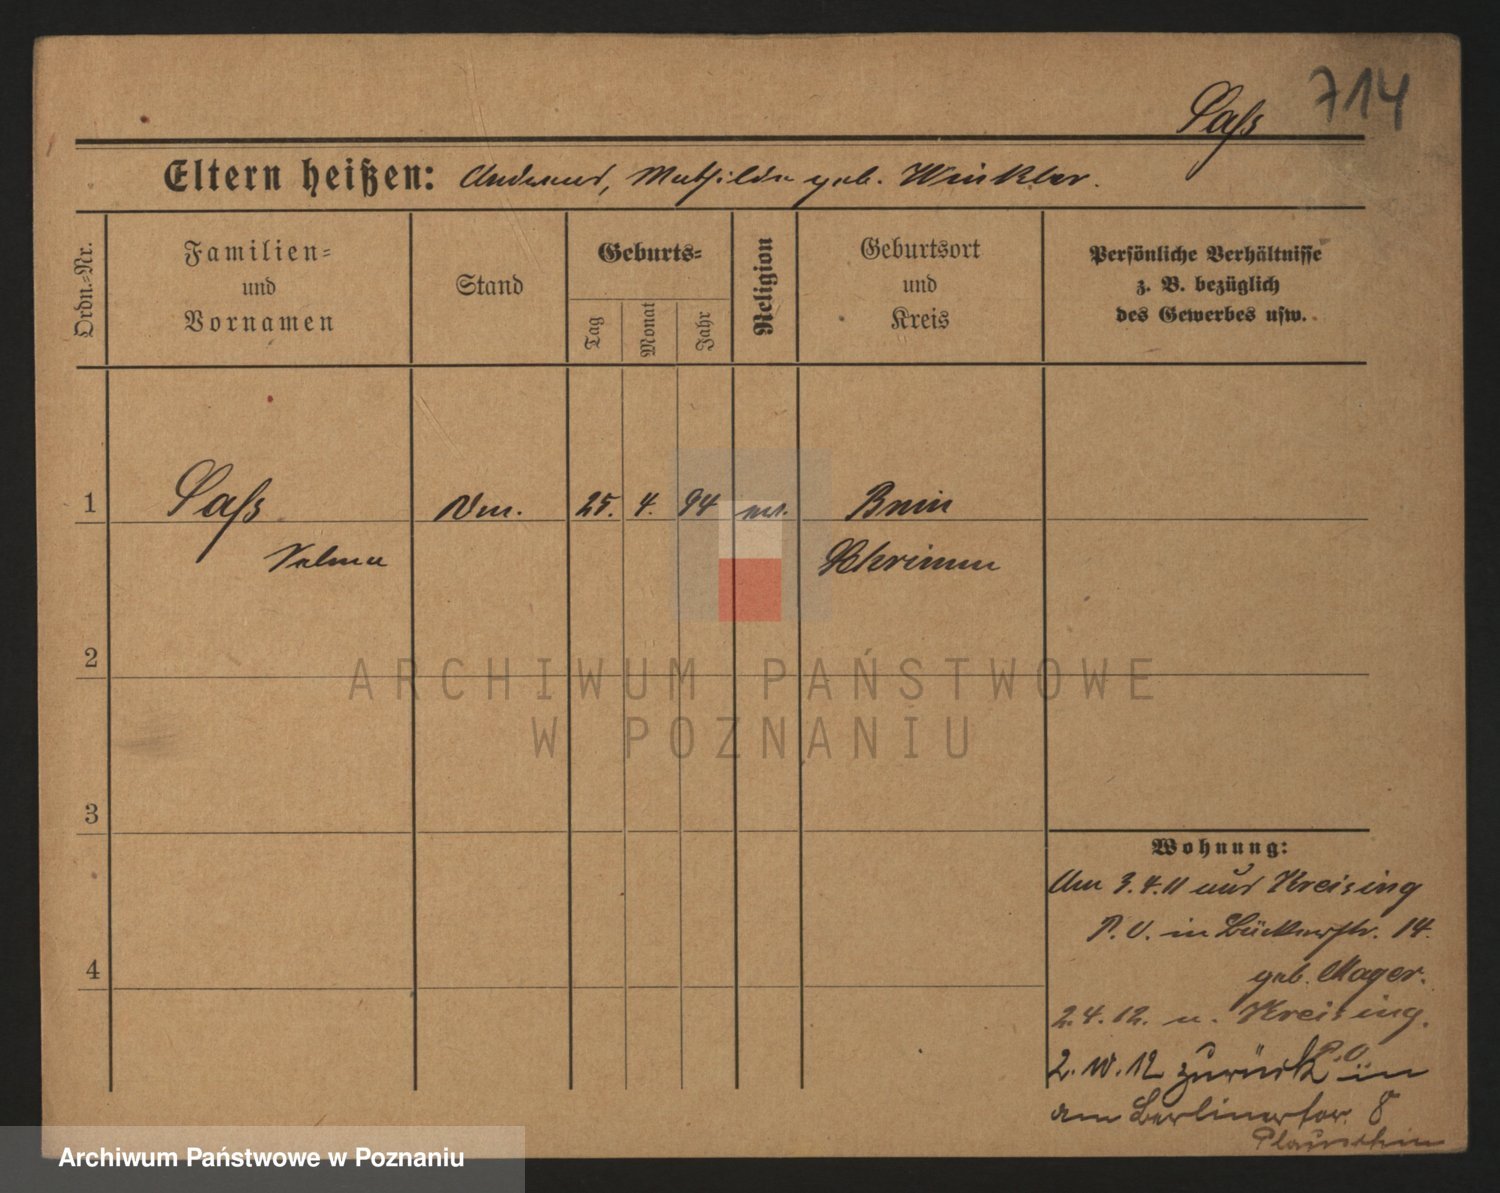 714
Saß
Eltern heißen: Andreas, Mathilde geb. Winkler.
Ordn.-Nr.
Familien-
und
Vornamen
Stand
Geburts-
Tag
Monat
Jahr
Religion
Geburtsort
und
Kreis
Persönliche Verhältnisse
z. B. bezüglich
des Gewerbes usw.
1 Saß 25. 4. 94 Bnin
Schrimm
2
3
4
Wohnung:
Am 3.4.11 aus Kreising
P. O. in 14.
geb. Mager.
2.4.12. n. Kreising.
P.O.
2. 10. 12 zurück in
am Berlinertor 8
ARCHIWUM PAŃSTWOWE
W POZNANIU
Archiwum Państwowe w Poznaniu